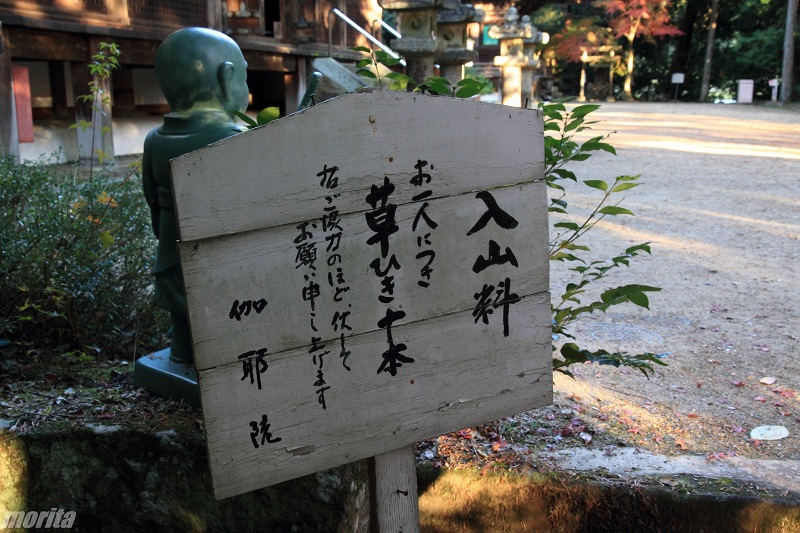 入山料
お一人につき
草ひき十本
なご協力のほど、伏して
お願い申し上げます
伽耶院
morita